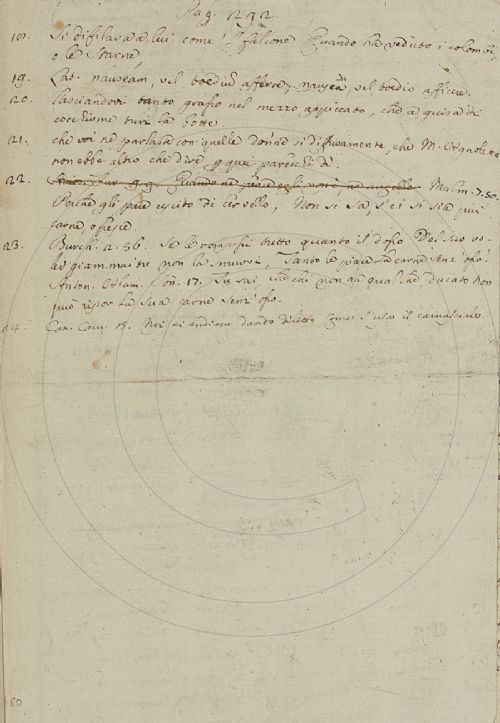 Pag. 292.
18. Si difilava a lui come 'l falcone Quando ha veduto i colombi,
o le starne
19. Lat. nauseam, vel taedium afferre, nausea, vel taedio afficere
20. lasciandovi tanto grasso nel mezzo appiccato, che a guisa di
cocchiume turi la botte
21. che voi ne parlaste con quelle donne si diffusamente, che M.
non ebbe altro che dire p. que' parecchi dì.
22. Malm. 7. 50.
Perchè gli pare uscito di cervello, Non si sa, s'ei si sia più
carne, o pesce.
23. Burch. 2. 56. Se le rompessi tutto quanto il dosso Del suo vo-
ler giammai tu non la smuovi, Tanto le piace la carne senz' osso.
Anton. Alam. Son. 17. Tu sai, che chi non ha qualche ducato Non
può riporre la sua carne senz' osso.
24. Can. Carn. 15. Noi ci andiam dando diletto Come s'usa il carnasciale
60